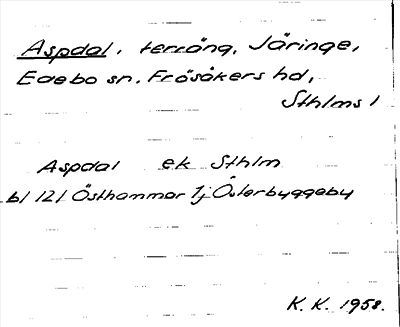 Aspdal, terräng, Järinge,
Edebo sn. Frösåkers hd,
Sthlms l
Aspdal ek Sthlm
bl 121 Östhammar 1j Österbyggeby
K. K. 1958.